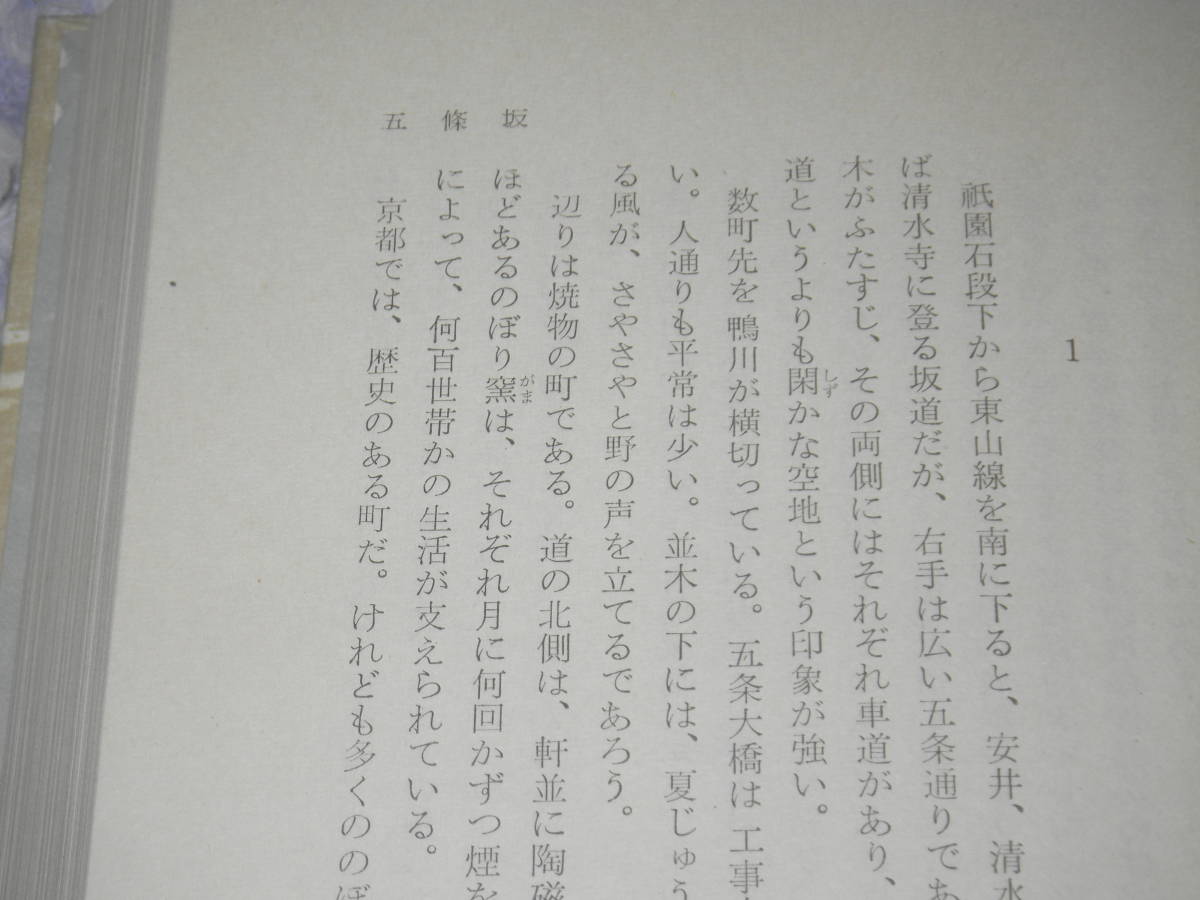 1
祇園石段下から東山線を南に下ると、安井、清水
ば清水寺に登る坂道だが、右手は広い五条通りであ
木がふたすじ、その両側にはそれぞれ車道があり、
道というよりも閑かな空地という印象が強い。
しず
数町先を鴨川が横切っている。五条大橋は工事
い。人通りも平常は少い。並木の下には、夏じゅう
る風が、さやさやと野の声を立てるであろう。
辺りは焼物の町である。道の北側は、軒並に陶磁
ほどあるのぼり窯は、それぞれ月に何回かずつ煙を
がま
によって、何百世帯かの生活が支えられている。
京都では、歴史のある町だ。けれども多くののぼ
五條坂